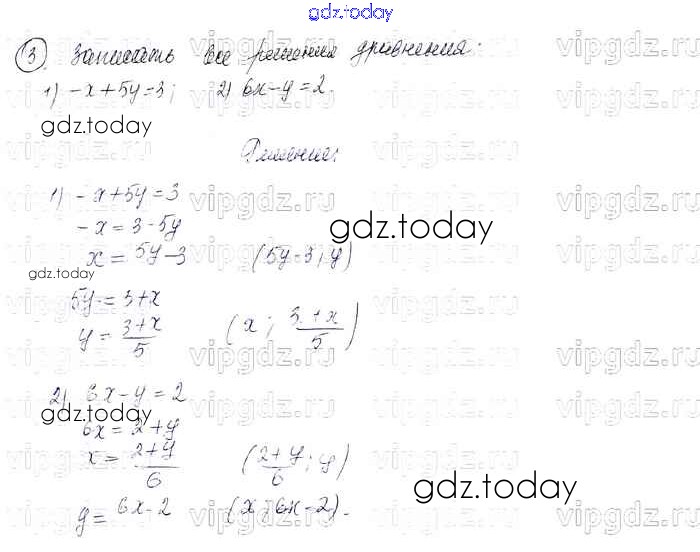 gdz.today
3. Записать все решения уравнения:
1) -x+5y=3; 2) 6x-y=2.
gdz.today
Решение:
1) -x+5y=3
-x=3-5y
gdz.today
x=5y-3 (5y-3; y)
gdz.today
5y=3+x
y=\frac{3+x}{5} (x; \frac{3+x}{5})
2) 6x-y=2
gdz.today
6x=2+y
x=\frac{2+y}{6} (\frac{2+y}{6}; y)
gdz.today
y=6x-2 (x; 6x-2).
vipgdz.ru